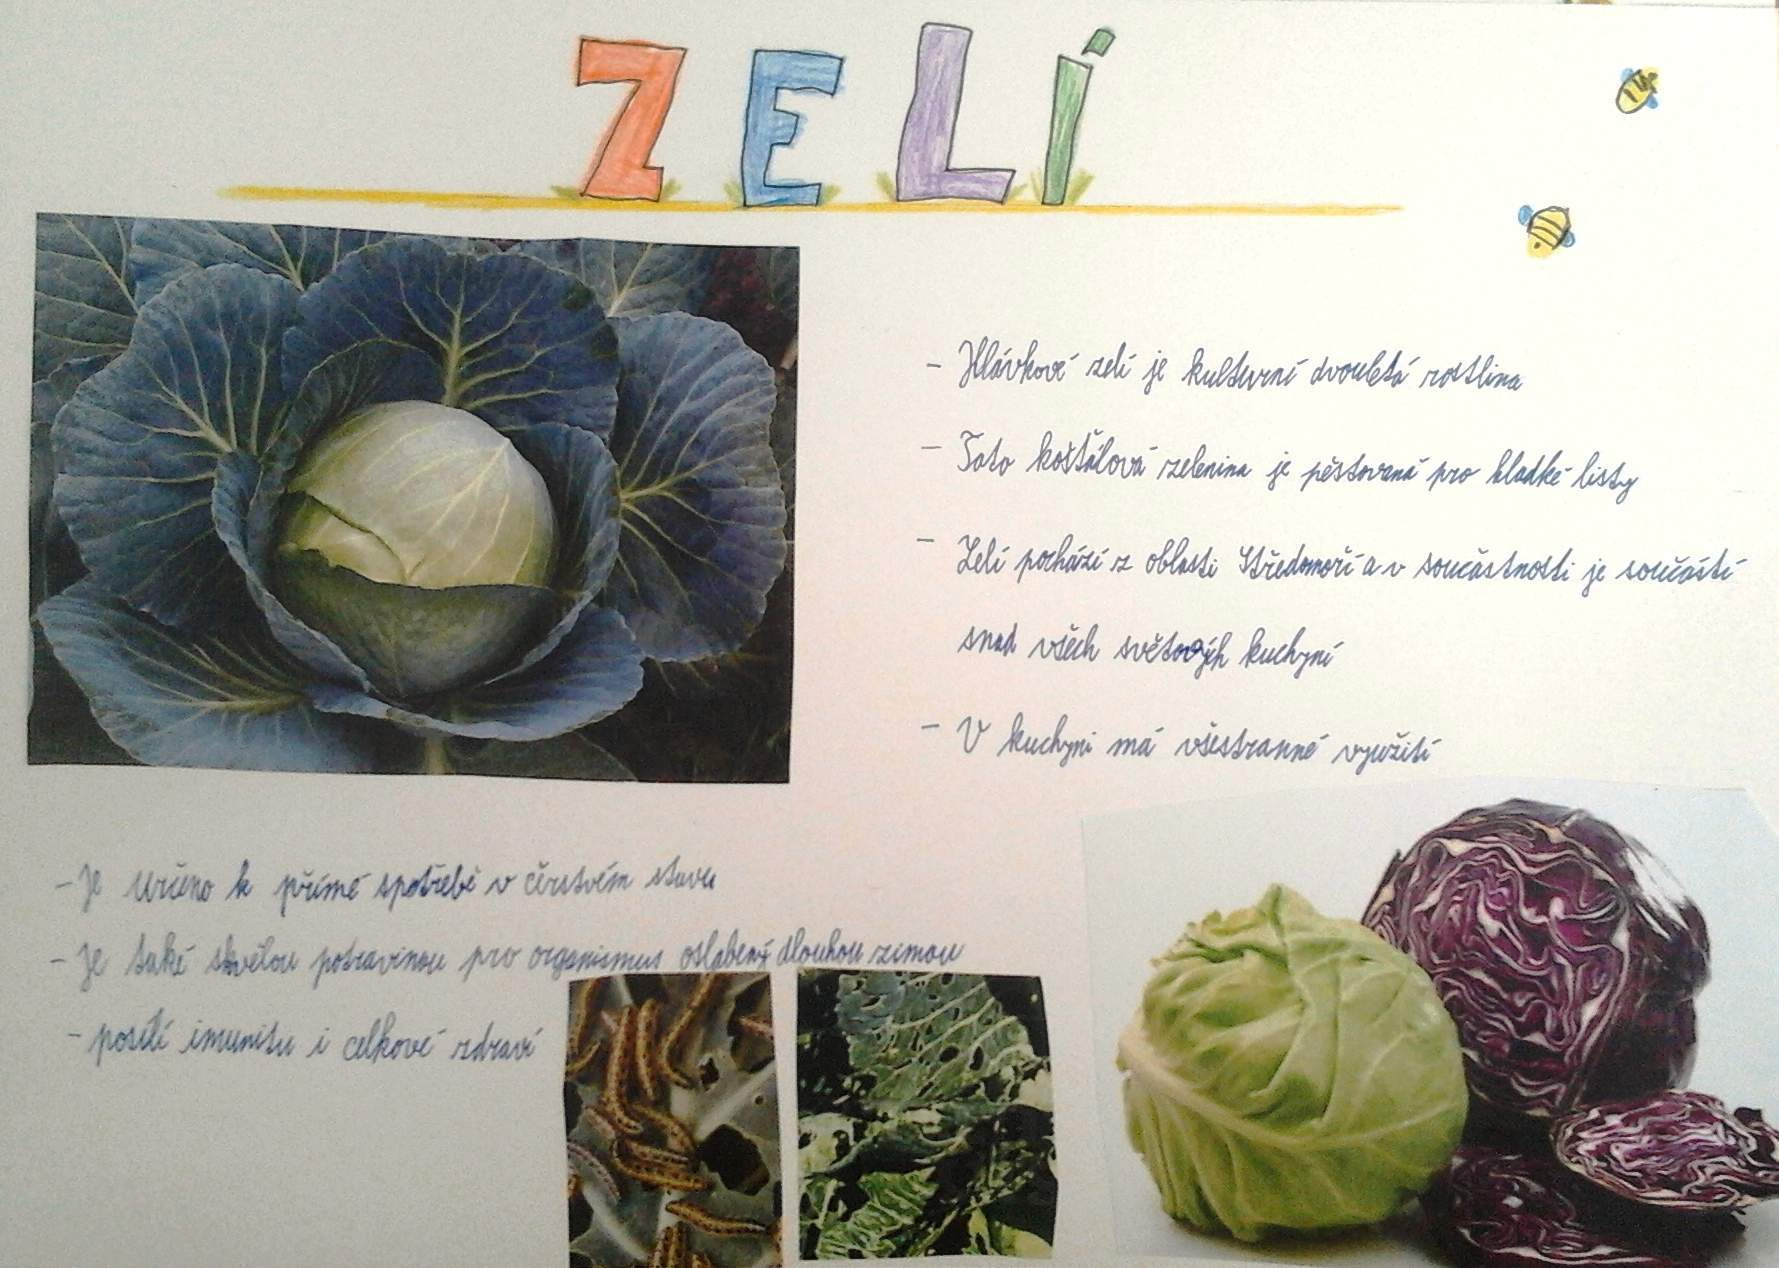 ZELÍ
- Hlávkové zelí je kulturní dvouletá rostlina
- Tato košťálová zelenina je pěstovaná pro hladké listy
- Zelí pochází z oblasti Středomoří a v součastnosti je součástí
snad všech světových kuchyní
- V kuchyni má všestranné využití
- Je určeno k přímé spotřebě v čerstvém stavu
- Je také skvělou potravinou pro organismus oslabený dlouhou zimou
- posílí imunitu i celkové zdraví